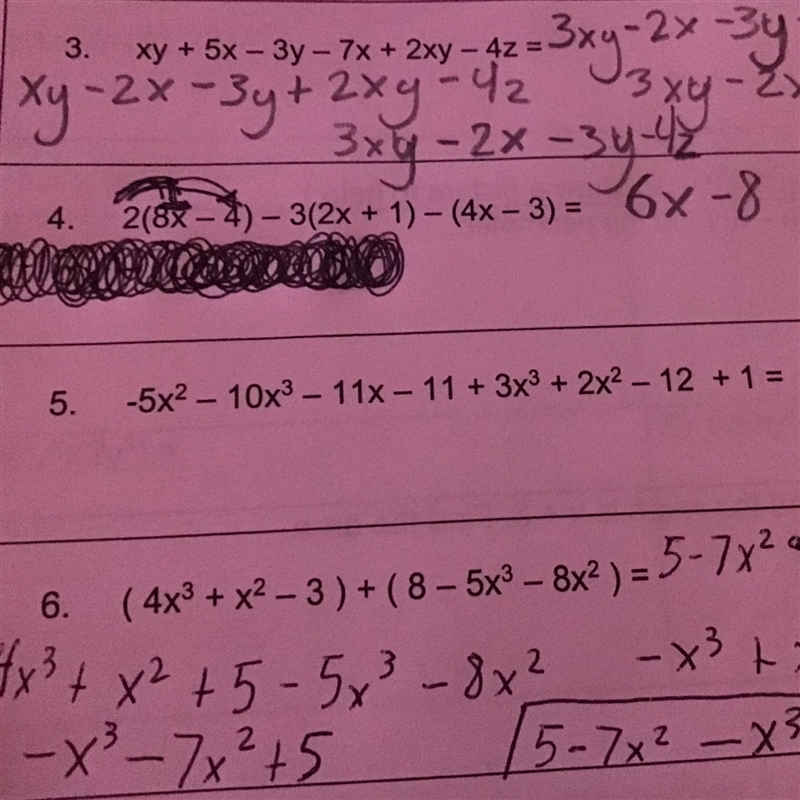 3. xy + 5x – 3y – 7x + 2xy – 4z = 3xy - 2x - 3y
xy - 2x - 3y + 2xy - 4z 3xy - 2x
3xy - 2x - 3y - 4z
4. 2(8x – 4) – 3(2x + 1) – (4x – 3) = 6x - 8
5. -5x² – 10x³ – 11x – 11 + 3x³ + 2x² – 12 + 1 =
6. ( 4x³ + x² – 3 ) + ( 8 – 5x³ – 8x² ) = 5 - 7x²
4x³ + x² + 5 - 5x³ - 8x² - x³ +
- x³ - 7x² + 5 5 - 7x² - x³